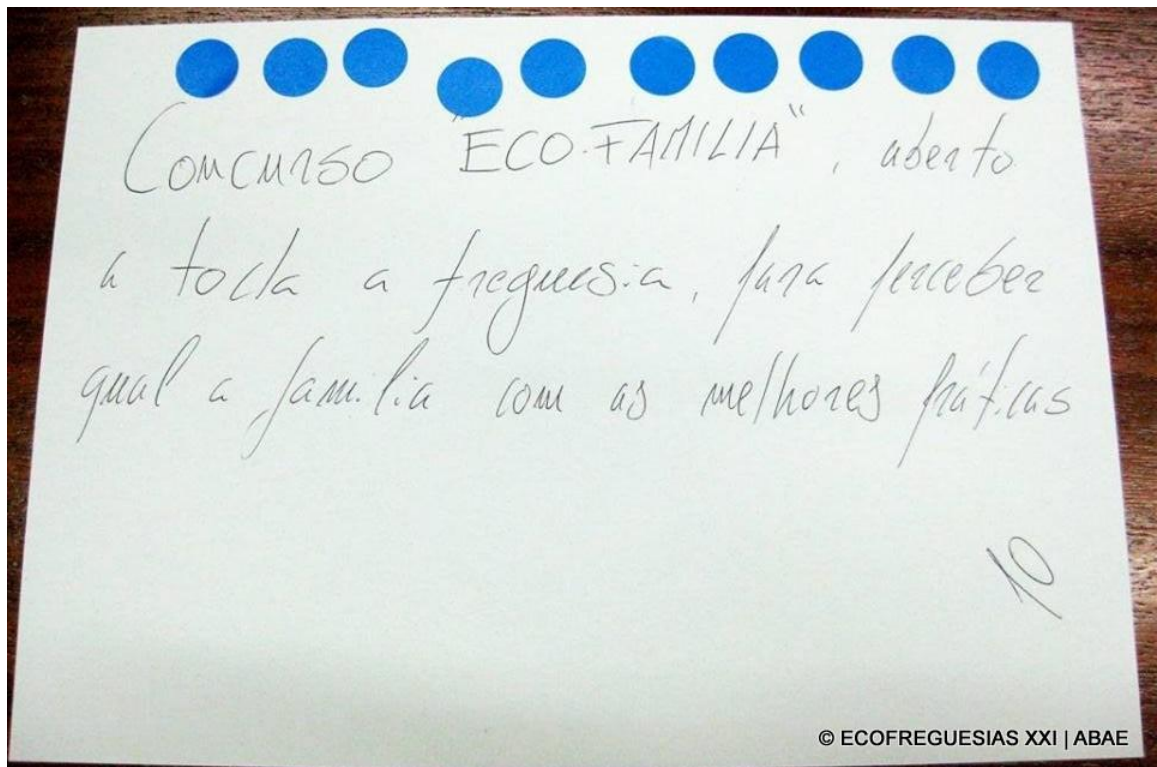 Concurso "ECO-FAMILIA", aberto
a toda a freguesia, para perceber
qual a família com as melhores práticas
10
© ECOFREGUESIAS XXI | ABAE